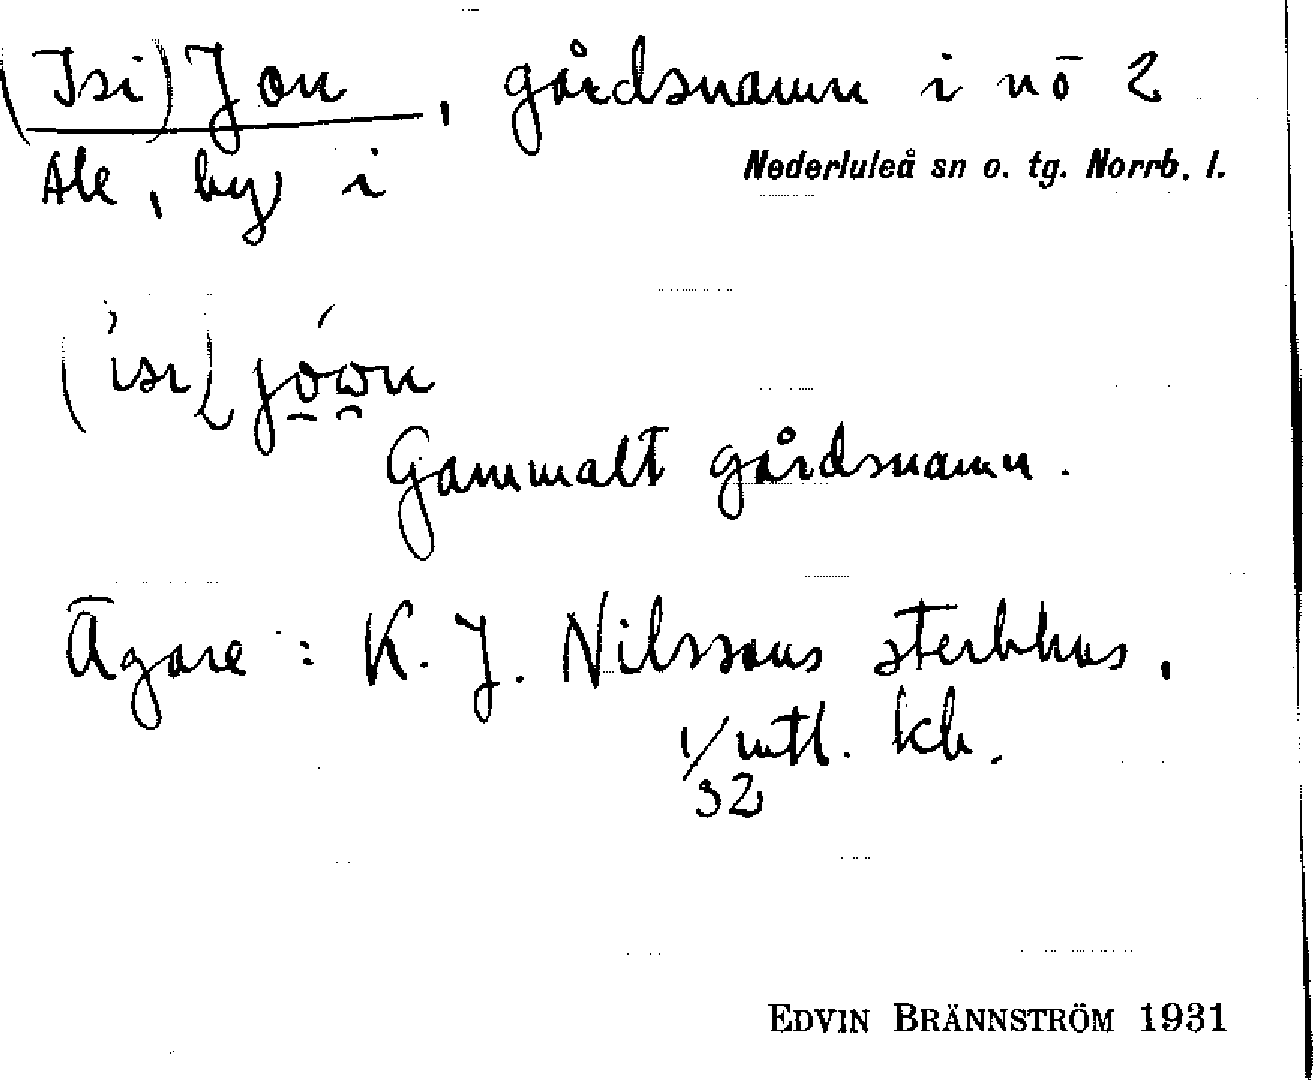 (Isi) Jon, gårdsnamn i nö 2
Ale, by i Nederluleå sn o. tg. Norrb. l.
Gammalt gårdsnamn.
Ägare: K. J. Nilssons sterbhus,
1/32 mtl. kb.
EDVIN BRÄNNSTRÖM 1931